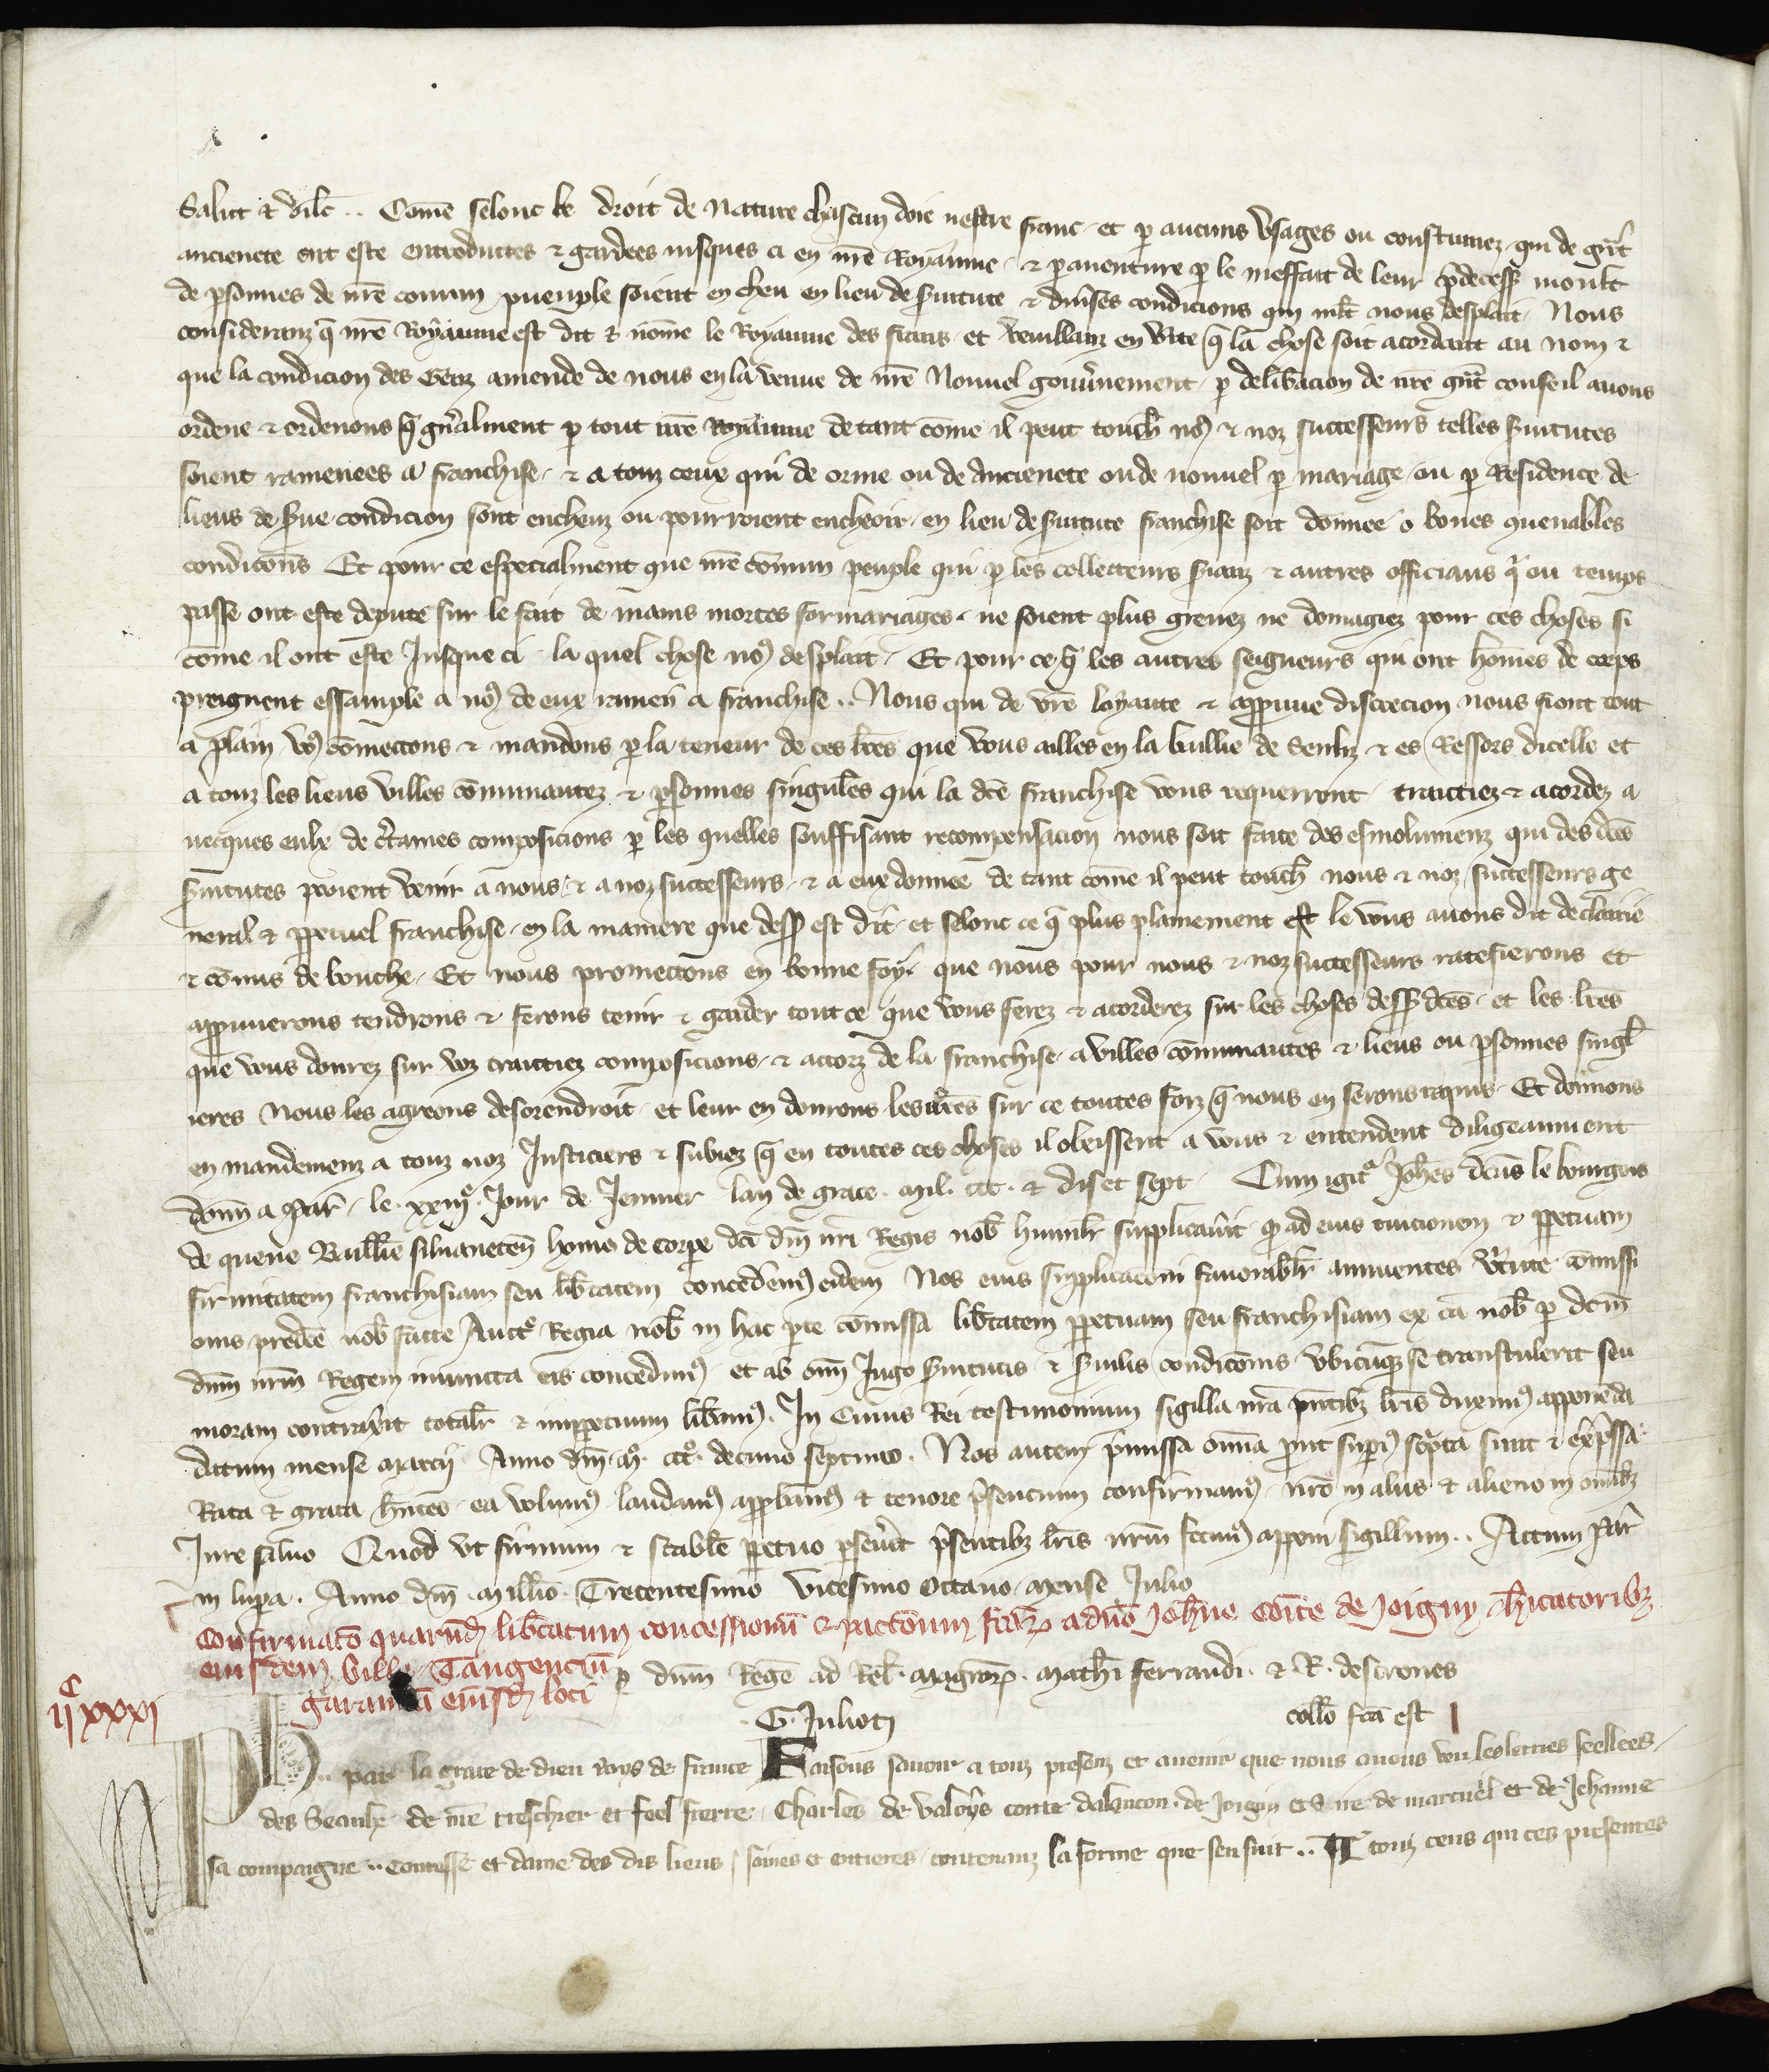 Salut et dilc̄. Com̄e selonc le droit de nature chascun doie nestre franc et ꝑ aucuns usages ou coustumez qui de gr̄t
ancienete ont este entroductes et gardees iusques ci en nr̄e Royaume et ꝑ auenture ꝑ le meffait de leur p̄decess̄ moult
de ꝑsonnes de nr̄e comun pueuple soient encheu en lieu de s̄uitute et diūses condicions qui ml̄t nous desplait Nous
consideranz q̄ nr̄e Royaume est dit et nom̄e le Royaume des frans et veuillanz en v̄ite q̄ la chose soit acordant au nom et
que la condicion des Genz amende de nous en la venue de nr̄e Nouuel gouūnement ꝑ delib̄acion de nr̄e gr̄t conseil auons
ordene et ordenons q̄ gn̄alment ꝑ tout nr̄e Royaume de tant com̄e il peut touch̄ noꝰ et noz successeurs telles s̄uitutes
soient ramenees a franchise et a touz ceux qui de orine ou de ancienete ou de nouuel ꝑ mariage ou ꝑ Residence de
lieus de s̄ue condicion sont encheuz ou pourroient encheoir en lieu de s̄uitute franchise soit donnee o bones ꝯuenables
condicōns Et pour ce especialment que nr̄e com̄un peuple qui ꝑ les collecteurs s̄ianz et autres officiaus qͥ ou temps
passe ont este depute sur le fait de mains mortes formariages ne soient plus greuez ne domagiez pour ces choses si
com̄e il ont este Jusque ci la quel chose noꝰ desplait Et pour ce q̄ les autres seigneurs qui ont hom̄es de corps
preignent essample a noꝰ de eux ramen̄ a franchise .. Nous qui de vr̄e loyaute et approuue discrecion nous fiont tout
a plain voꝰ com̄ectons et mandons ꝑ la teneur de ces lr̄es que vous ailles en la baillie de Senliz et es Ressors dicelle et
a touz les lieus villes com̄unautez et ꝑsonnes singul̄es qui la dc̄e franchise vous requerront traictiez et acordez a
uecques eulx de c̄taines composicions ꝑ les quelles souffisant recompensacion nous soit faite des esmolumenz qui des dc̄es
s̄uitutes pooient venir a nous et a noz successeurs et a eux donnee de tant com̄e il peut touch̄ nous et noz successeurs ge
neral et ꝑpetuel franchise en la maniere que dess̄ est dit et selonc ce q̄ plus plainement le vous auons dit declairie
et com̄is de bouche Et nous promectons en bonne foy que nous pour nous et noz successeurs ratefierons et
approuuerons tendrons et ferons tenir et garder tout ce que vous ferez et acorderez sur les choses dess̄ dc̄es et les lr̄es
que vous donrez sur voz traictiez composicions et accorz de la franchise a villes com̄unautes et lieus ou ꝑsonnes singl̄
ieres Nous les agreons desorendroit et leur en donrons les nr̄es sur ce toutes foiz q̄ nous en serons requis Et donnons
en mandemenz a touz noz Justiciers et subiez q̄ en toutes ces choses il obeissent a vous et entendent diligeaument
donn̄ a Par̄ le xxiijͤ Jour de Jenuier lan de grace mil ccc et diset sept Cum igit̄ Joh̄es dc̄us le bourgois
de queue Baillie siluaneten̄ homo de corpe dc̄i dn̄i nr̄i Regis nob̄ humilr̄ supplicau̇it qͦ ad eius tuicionem et ꝑpetuam
firmitatem franchisiam seu lib̄tatem concedem̄ꝰ eidem Nos eius supplicacōni fauorablr̄ annuentes v̄tute com̄issi
onis predc̄e nob̄ facte Auctͤ Regia nob̄ in hac ꝑte com̄issa lib̄tatem ꝑpetuam seu franchisiam ex cā nob̄ ꝑ dc̄m
dn̄m nr̄m Regem iniuncta eis concedimꝰ et ab om̄i Jugo s̄uitutis et s̄uilis condicōnis vbicūqꝫ se transtulerit seu
moram contrax̄it totalr̄ et imꝑpetuum lib̄amꝰ. In Cuius Rei testimonium sigilla nr̄a p̄ntibꝫ lr̄is duximꝰ apponēda
datum mense marcii Anno dn̄i mͦ cccͦ decimo septimo. Nos autem p̄missa om̄ia prout supiꝰ sc̄pta sunt et exp̄ssa
Rata et grata h̄ntes ea volumꝰ laudamꝰ approbamꝰ et tenore p̄sentium confirmamꝰ nr̄o in aliis et alieno in om̄ibꝫ
Jure saluo Quod vt firmum et stabile ꝑpetuo ꝑseu̇et p̄sentibꝫ lr̄is nr̄m fecimꝰ apponi sigillum .. Actum Par̄
in lupara. Anno dn̄i millio Trecentesimo Vicesimo Octauo mense Julio
Confirmacō quarund̄ lib̄tatum concessionū et pactionum fcāꝝ a dn̄o Joh̄ne com̄te de Joigny h̄itatoribꝫ
eiusdem Ville Tangenciū ꝑ dn̄m Regē ad Rel̄. magroꝝ. mathi ferrandi. et R. desirones
garannā eiusd̄ loci
.G. Julioti collō fcā est
ijͨxxxj
Ph.. par la grace de dieu Roys de france Faisons sauoir a touz presenz et auenir que nous auons veu les lettres seellees
des Seaulx de nr̄e treschier et feel frere Charles de valoys conte dalencon de Joigny et s̄ de marcueil et de Jehanne
sa compaigne .. contesse et dame des dis lieus saines et entieres contenanz la forme que sensuit .. A touz ceus qui ces presentes